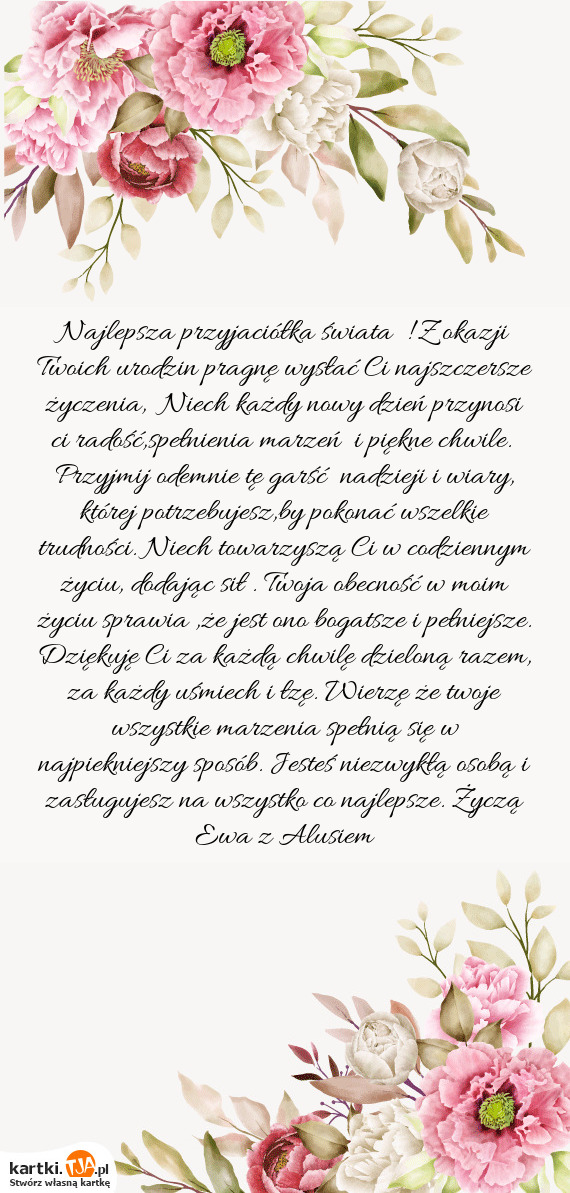 Najlepsza przyjaciółka świata  ! Z okazji
Twoich urodzin pragnę wysłać Ci najszczersze
życzenia,  Niech każdy nowy dzień przynosi
ci radość,spełnienia marzeń  i piękne chwile.
Przyjmij odemnie tę garść  nadzieji i wiary,
której potrzebujesz,by pokonać wszelkie
trudności. Niech towarzyszą Ci w codziennym
życiu, dodając sił . Twoja obecność w moim
życiu sprawia ,że jest ono bogatsze i pełniejsze.
Dziękuję Ci za każdą chwilę dzieloną razem,
za każdy uśmiech i łzę. Wierzę że twoje
wszystkie marzenia spełnią się w
najpiekniejszy sposób. Jesteś niezwykłą osobą i
zasługujesz na wszystko co najlepsze. Życzą
Ewa z Alusiem
kartki.TJA.pl
Stwórz własną kartkę